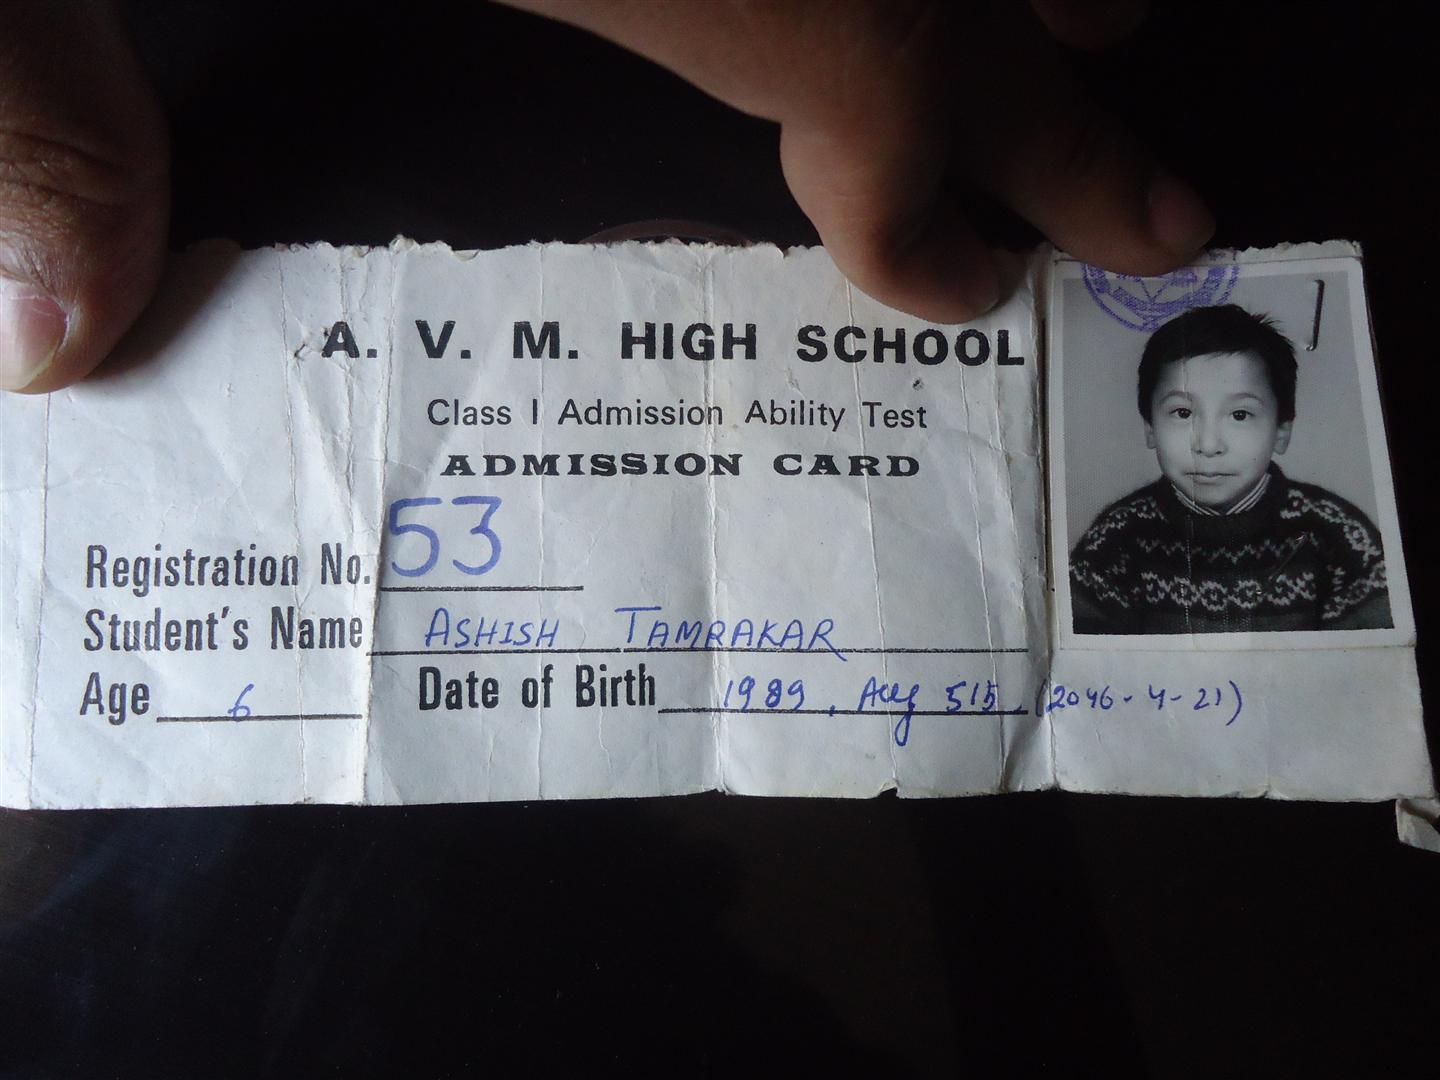 A. V. M. HIGH SCHOOL
Class I Admission Ability Test
ADMISSION CARD
Registration No. 53
Student's Name ASHISH TAMRAKAR
Age 6 Date of Birth 1989, Aug 5 (2046-4-21)